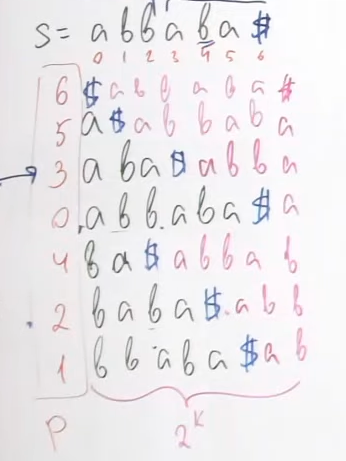 s = a b b a b a $
0 1 2 3 4 5 6
6 $ a b b a b a $
5 a $ a b b a b a
3 a b a $ a b b a
0 a b b a b a $ a
4 b a $ a b b a b
2 b a b a $ a b b
1 b b a b a $ a b
p 2^k